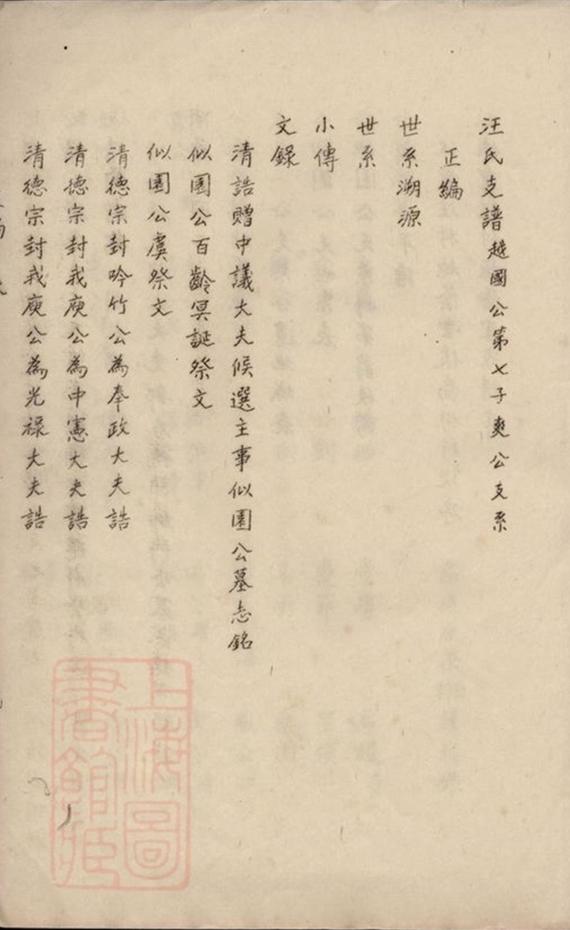 汪氏支譜越國公第七子爽公支系
正編
世系溯源
世系
小傳
文錄
清誥贈中議大夫候選主事似園公墓志銘
似園公百齡冥誕祭文
似園公虞祭文
清德宗封吟竹公為奉政大夫誥
清德宗封我庾公為中憲大夫誥
清德宗封我庾公為光祿大夫誥
上海圖
書館藏